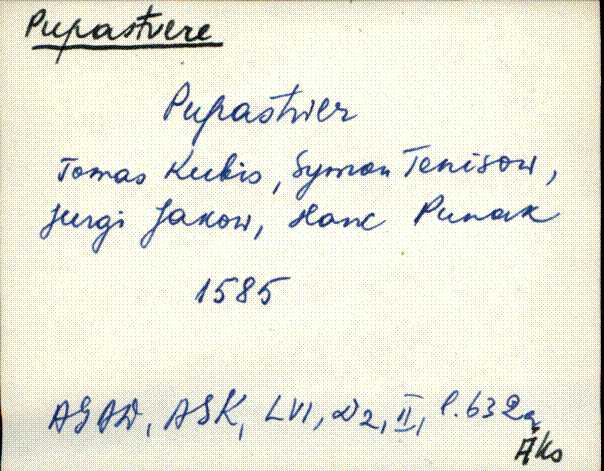 Pupastvere
Pupastwier
Tomas Kubis, Symon Tenisow,
Jurgi Jakow, Hanc Punak
1585
AGAD, ASK, LVI, D2, II, l. 632a
Äko